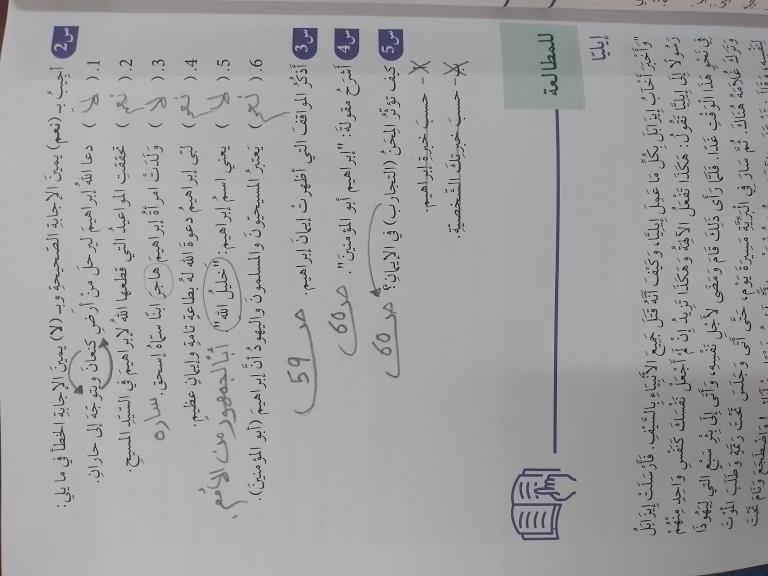 س2 أُجيبُ بـ (نعم) يمينَ الإجابةِ الصّحيحةِ وبـ (لا) يمينَ الإجابةِ الخطأ في ما يلي:
1. ( لا ) دعا اللهُ إبراهيمَ ليرحلَ منْ أرضِ كنعانَ ويتوجّهَ إلى حاران.
2. ( نعم ) تحققت المواعيدُ التي قطعها اللهُ لإبراهيمَ في السّيّدِ المسيحِ.
3. ( لا ) ولدَتْ امرأةُ إبراهيمَ هاجرَ ابنًا سمّاهُ إسحق. ساره
4. ( نعم ) لبّى إبراهيمُ دعوةَ اللهِ لهُ بطاعةٍ تامةٍ وإيمانٍ عظيمٍ.
5. ( لا ) يعني اسمُ إبراهيم: "خليلُ الله" أبًا لجمهور من الأمم.
6. ( نعم ) يَعتبرُ المسيحيّونَ والمسلمونَ واليهودُ أنّ إبراهيمَ (أبو المؤمنينَ).
س3 أذكُرُ المواقفَ التي أظهرتْ إيمانَ إبراهيم. ص 59
س4 أشرحُ مقولةَ: "إبراهيم أبو المؤمنينَ". ص 60
س5 كيفَ تؤثّرُ المِحَنُ (التجارب) في الإيمانِ؟ ص 60
أ- حسبَ خبرةِ إبراهيم.
ب- حسبَ خبرتِكَ الشّخصيّةِ.
للمطالعة
إيليّا
"وَأَخْبَرَ أَخْآبُ إِيزَابَلَ بِكُلِّ مَا عَمِلَ إِيلِيَّا، وَكَيْفَ أَنَّهُ قَتَلَ جَمِيعَ الأَنْبِيَاءِ بِالسَّيْفِ. فَأَرْسَلَتْ إِيزَابَلُ
رَسُولاً إِلَى إِيلِيَّا تَقُولُ: هكَذَا تَفْعَلُ الآلِهَةُ وَهكَذَا تَزِيدُ إِنْ لَمْ أَجْعَلْ نَفْسَكَ كَنَفْسِ وَاحِدٍ مِنْهُمْ
فِي نَحْوِ هذَا الْوَقْتِ غَدًا. فَلَمَّا رَأَى ذلِكَ قَامَ وَمَضَى لأَجْلِ نَفْسِهِ، وَأَتَى إِلَى بِئْرِ سَبْعٍ الَّتِي لِيَهُوذَا
وَتَرَكَ غُلاَمَهُ هُنَاكَ. ثُمَّ سَارَ فِي الْبَرِّيَّةِ مَسِيرَةَ يَوْمٍ، حَتَّى أَتَى وَجَلَسَ تَحْتَ رَتَمَةٍ وَطَلَبَ الْمَوْتَ
لِنَفْسِهِ، وَقَالَ: وَاضْطَجَعَ وَنَامَ تَحْتَ